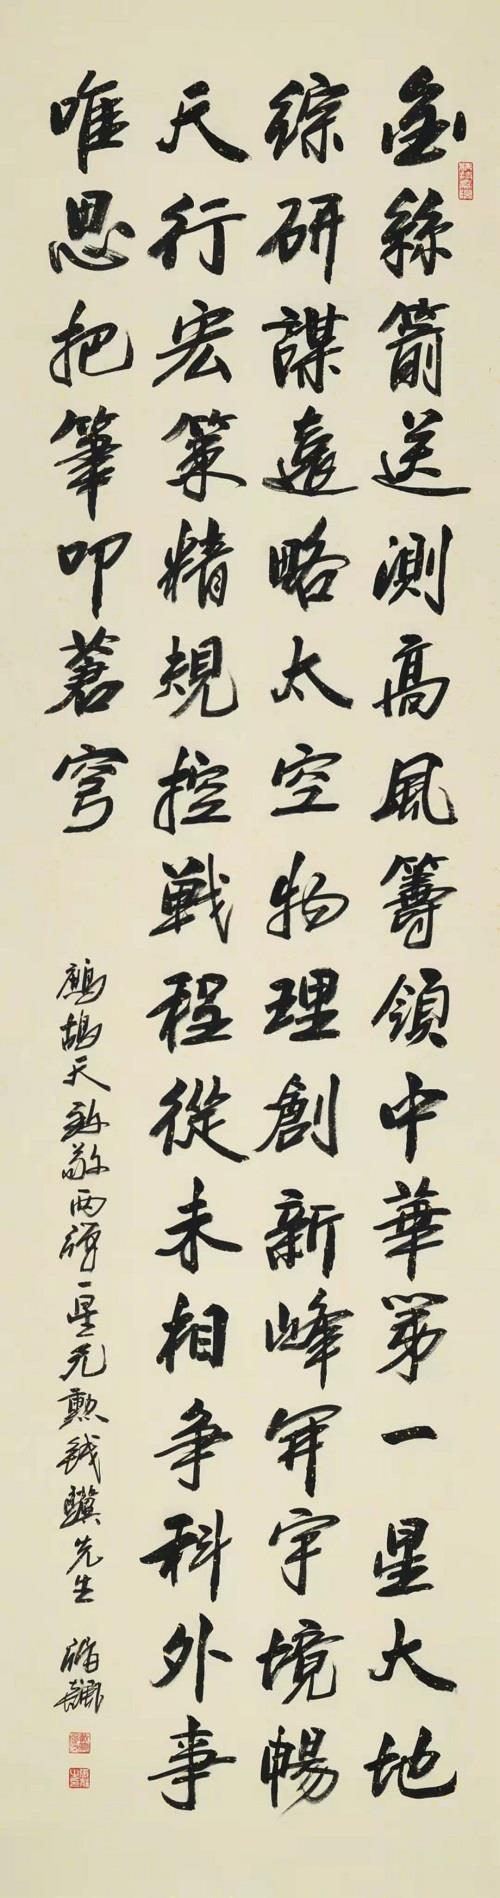 箭送測高風籌領中華第一星大地
綜研謀遠略太空物理創新峰開宇境暢
天行宏策精規控戰程從未相爭科外事
唯思把筆叩蒼穹
鷓鴣天 致敬兩彈一星元勳錢驥先生